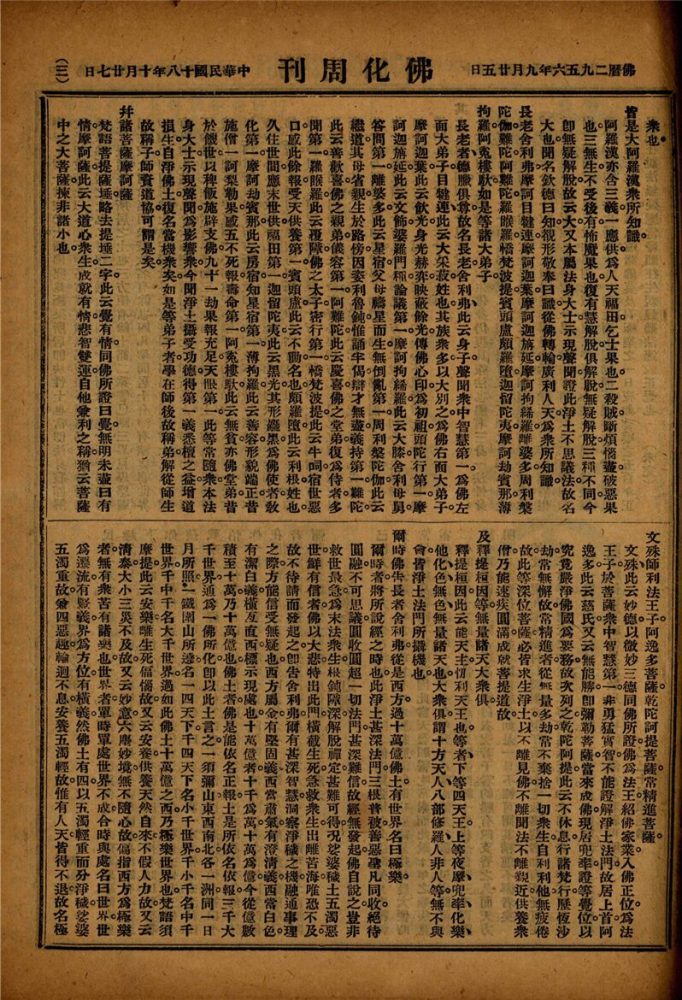 佛曆二九五六年九月廿五日
佛化周刊
中華民國十八年十月廿七日
(三)
衆也。
皆是大阿羅漢衆所知識。
阿羅漢亦含三義一應供爲人天福田乞士果也二殺賊斷煩惱盡破惡果
也三無生不受後有怖魔果也復有慧解脫俱解脫無疑解脫三種不同今
卽無疑解脫故云大又本屬法身大士示現聲聞證此淨土不思議法故名
大也聞名欽德曰知覩形敬奉曰識從佛轉輪廣利人天爲衆所知識
長老舍利弗摩訶目犍連摩訶迦葉摩訶迦旃延摩訶拘絺羅離婆多周利槃
陀伽難陀阿難陀羅睺羅憍梵波提賓頭盧頗羅墮迦留陀夷摩訶劫賓那薄
拘羅阿㝹樓馱如是等諸大弟子
長老者德臘俱尊故名長老舍利弗此云身子聲聞衆中智慧第一爲佛左
面大弟子目犍連此云大采菽姓也其族衆多以大別之爲佛右面大弟子
摩訶迦葉此云飲光身光赫奕映蔽餘光傳佛心印爲初祖頭陀行第一摩
訶迦旃延此云文飾婆羅門種論議第一摩訶拘絺羅此云大膝舍利母舅
答問第一離婆多此云星宿父母禱星而生無倒亂第一周利槃陀伽此云
繼道其母省親生於路傍因姿利魯鈍惟誦半偈辯才無盡義持第一難陀
此云善歡喜佛之親弟儀容第一阿難陀此云慶喜佛之堂弟復爲侍者多
聞第一羅睺羅此云覆障佛之太子密行第一憍梵波提此云牛呞宿世惡
口感此餘報受天供養第一賓頭盧此云不動名也頗羅墮此云利根姓也
久住世間應末世供福田第一迦留陀夷此云黑光其形麤黑爲佛使者教
化第一摩訶劫賓那此云房宿知星宿第一薄拘羅此云善容形貌端正昔
施僧一訶梨勒果感五不死報壽命第一阿㝹樓馱此云無貧亦佛堂弟昔
於饑世以稗飯施辟支佛九十一劫果報充足天眼第一此等常隨衆本法
身大士示現聲聞爲影響衆今聞淨土攝受功德得第一義悉檀之益增道
損生自淨佛土復名當機衆矣如是等弟子者學在師後故稱弟解從師生
故稱子師資道協可謂是矣
幷諸菩薩摩訶薩
梵語菩提薩埵略去提埵二字此云覺有情同佛所證曰覺無明未盡曰有
情摩訶薩此云大道心衆生成就有情悲智雙運自他兼利之稱猶云菩薩
中之大菩薩揀非諸小也
文殊師利法王子阿逸多菩薩乾陀訶提菩薩常精進菩薩
文殊此云妙德以微妙三德同佛所證佛爲法王紹佛家業入佛正位爲法
王子於菩薩衆中智慧第一非勇猛實智不能證解淨土法門故居上首阿
逸多此云慈氏又云無能勝卽彌勒菩薩當來成佛現居兜率證等覺位以
究竟嚴淨佛國爲要務故次列之乾陀阿提此云不休息行諸梵行歷恆沙
劫常無懈故常精進者從無量多劫常不棄捨一切衆生自利利他無疲倦
故此等深位菩薩必皆求生淨土以不離見佛不離聞法不離親近供養衆
僧乃能速疾圓滿成就菩提道故
及釋提桓因等無量諸天大衆俱
釋提桓因此云能天主忉利天王也等者下等四天王上等夜摩兜率化樂
他化色無色無量諸天也大衆俱謂十方天人八部修羅人非人等無不與
會皆淨土法門所攝機也
爾時佛告長老舍利弗從是西方過十萬億佛土有世界名曰極樂
爾時者將所說經之時也此淨土甚深法門三根普被善惡聖凡同收絕待
圓融不可思議圓收圓超一切法門甚深難信故經無發起佛自說之豈非
救世最急爲末法衆生根鈍障深解脫禪定甚難可得況娑婆穢土五濁惡
世鮮有信者佛以大悲特出此門橫截生死急救衆生出離苦海唯恐不及
故不待請而發起之卽告舍利弗爾有甚深智慧洞察淨穢之機融通事理
之際方能信受無疑也西方屬金有堅固義西當肅氣有澄清義西當白色
有潔白義橫亙直西標示現處也十萬億者十千爲萬十萬爲億今從億數
積至十萬乃十萬億也佛土者佛是能依名正報土是所依名依報三千大
千世界通爲一佛所化卽以此土言之一須彌山東西南北各一洲同一日
月所照一鐵圍山所遶名一四天下千四天下名小千世界千小千名中千
世界千中千名大千世界過如此佛土十萬億之西乃極樂世界也梵語須
摩提此云安樂離生死偪惱故又云安養供養天然自來不假人力故又云
清泰大小三災不及故又云妙意六塵妙境無不隨心故偏指西方爲極樂
者無有衆苦有諸樂也世界者單時單處世界不成合時與處名曰世界世
爲遷流有竪義界爲方位有橫義然佛土有四以五濁輕重而分淨穢娑婆
五濁重故兼四惡趣輪迴不息安養五濁輕故惟有人天皆得不退故名極